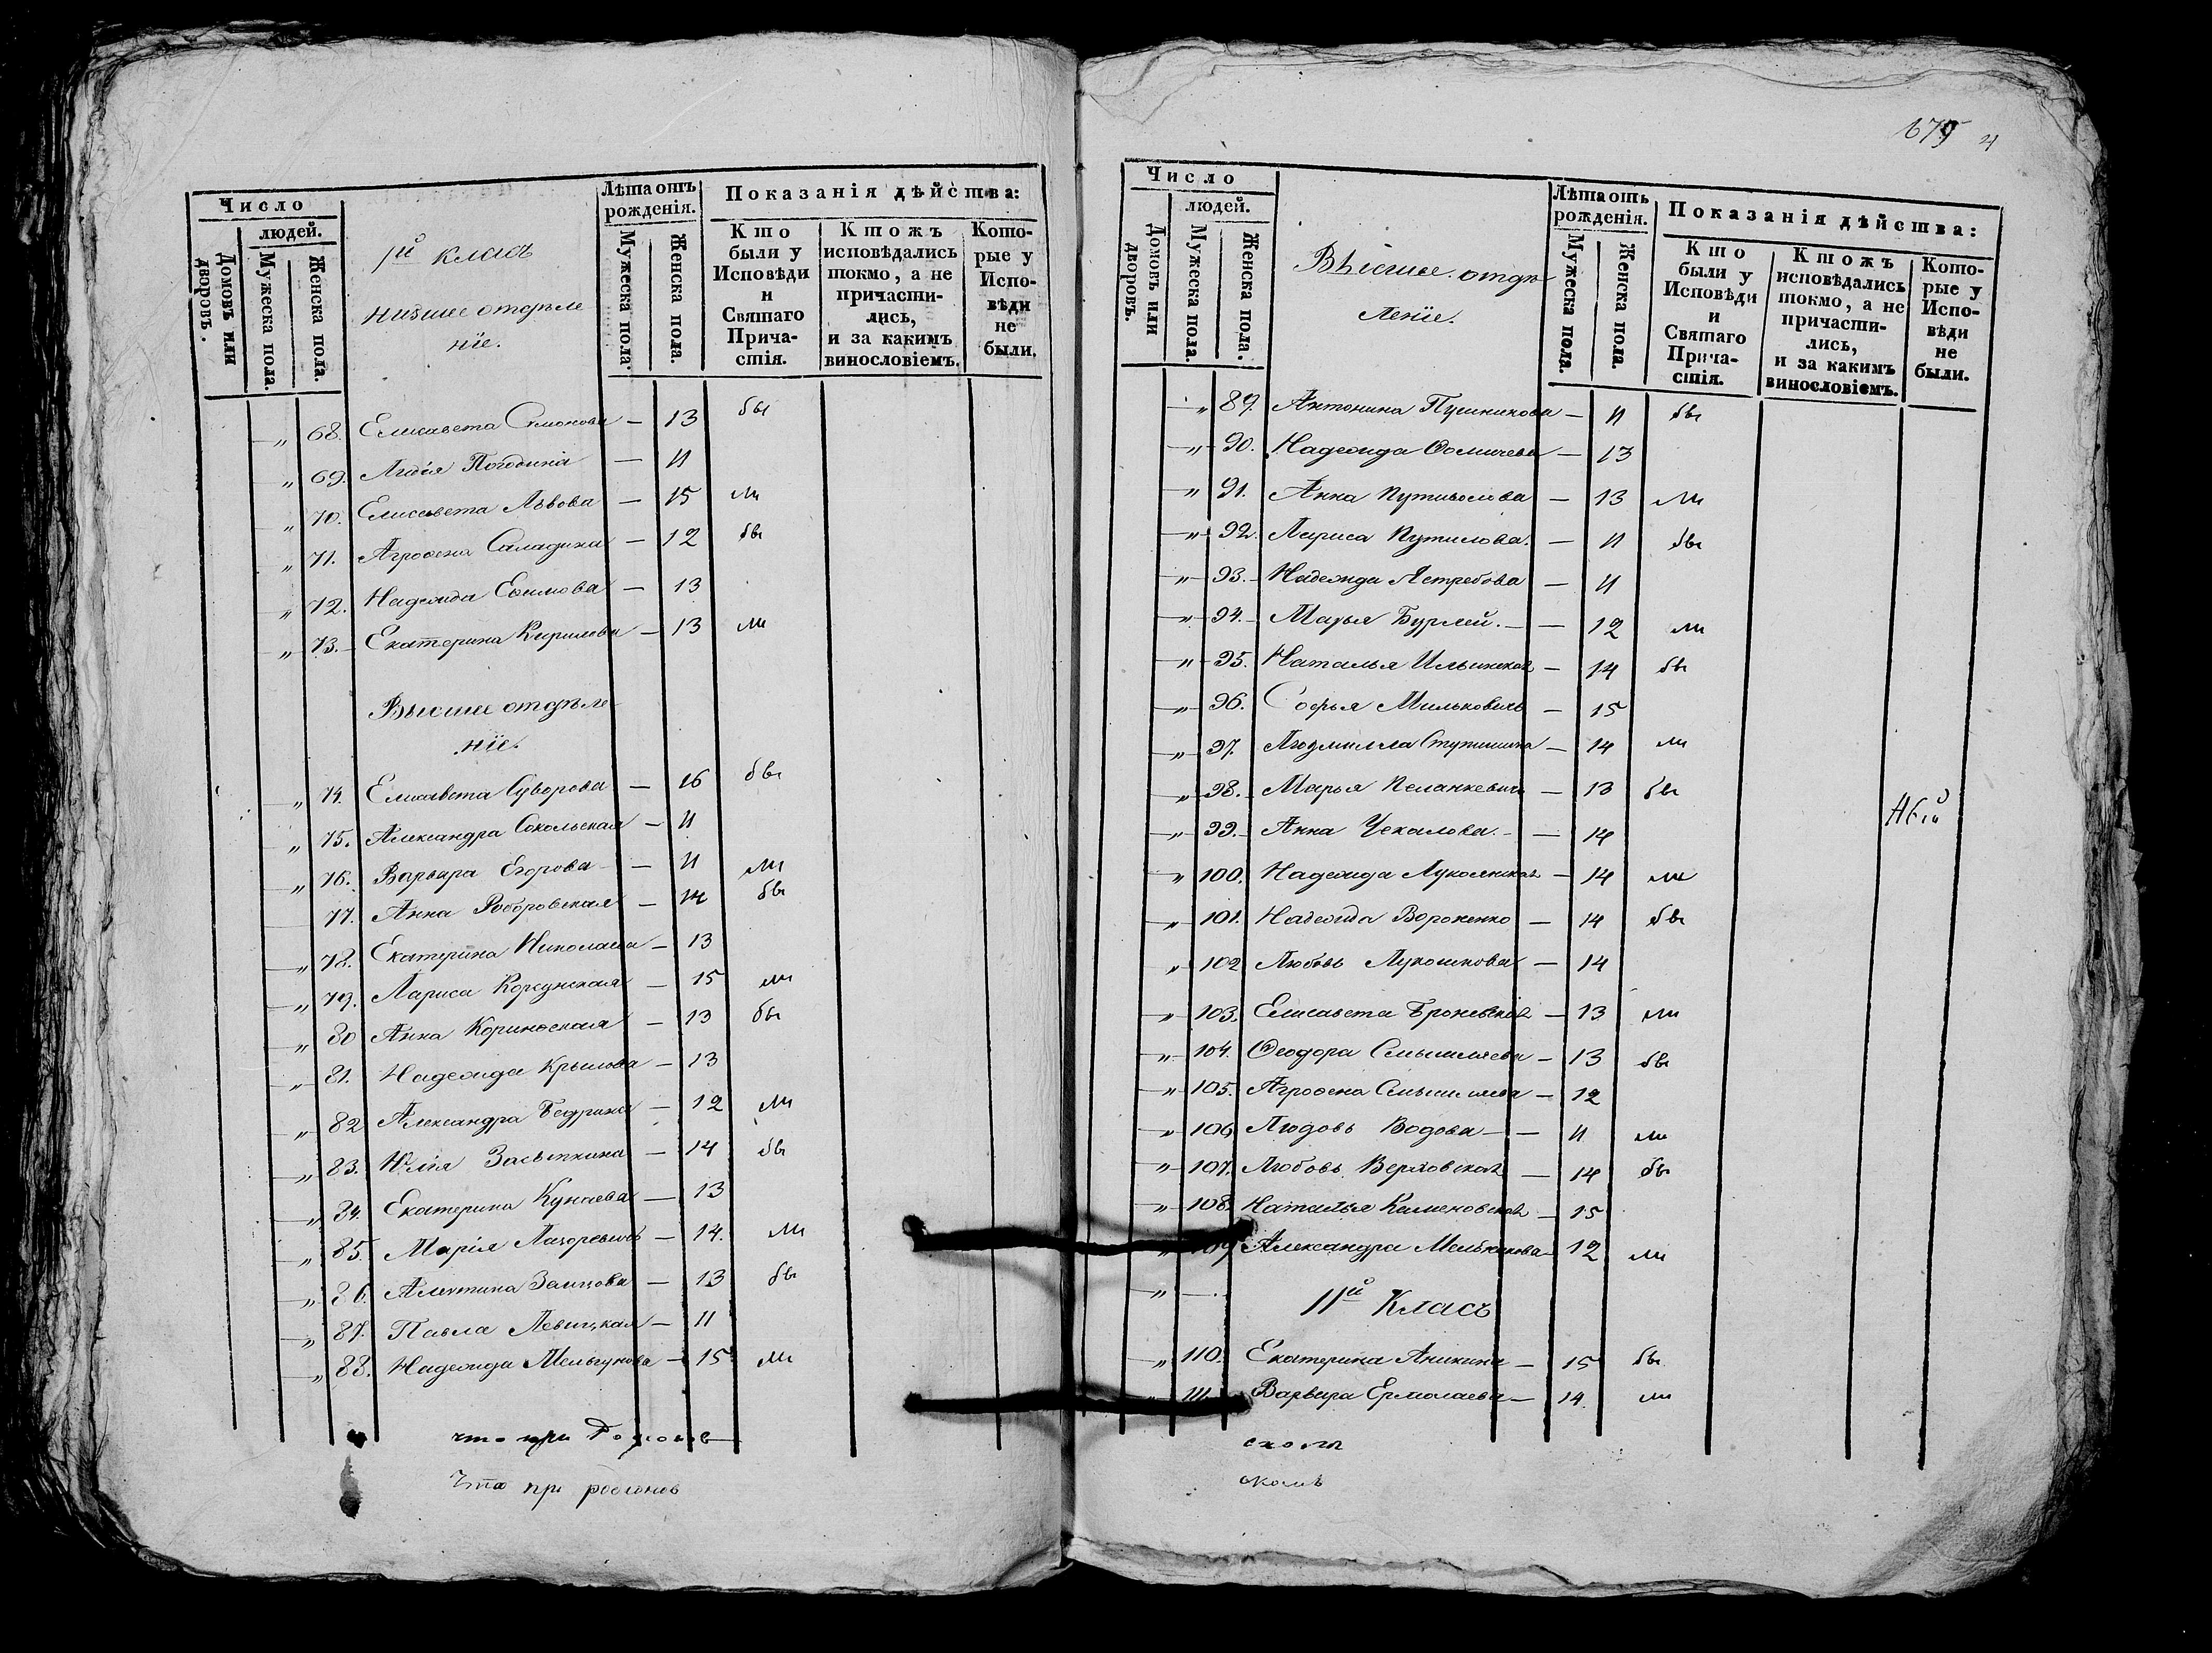 Число
людей.
Домовъ или дворовъ.
Мужеска пола.
Женска пола.
1й класъ
низшее отдѣле
нiе.
Лѣта отъ рожденія.
Мужеска пола.
Женска пола.
Показанія дѣйства:
Кто были у Исповѣди и Святаго Причастія.
Ктожъ исповѣдались токмо, а не причастились, и за какимъ винословіемъ.
Которые у Исповѣди не были.
" 68. Елисавета Симонова — 13 бы
" 69. Лидія Погодина — 11
" 70. Елисавета Львова — 15 ли
" 71. Агрофена Саладина — 12 бы
" 72. Надежда Ефимова — 13
" 73. Екатерина Кирилова — 13 ли
Высшее отдѣле
нiе.
" 74. Елисавета Суворова — 16 бы
" 75. Александра Сокольская — 11
" 76. Варвара Егорова — 11 ли
77. Анна Роборовская — 14 бы
" 78. Екатерина Николаева — 13
" 79. Лариса Корсунская — 15 ли
" 80 Анна Кориновская — 13 бы
" 81. Надежда Крылова — 13
" 82 Александра Бедрина — 12 ли
" 83. Юлія Засыпкина — 14 бы
" 84. Екатерина Кунаева — 13
" 85. Марія Лазоревичь — 14. ли
" 86. Алевтина Заицова — 13 бы
" 87. Павла Левицкая — 11
" 88. Надежда Мельгунова — 15 ли
что при
Что при
679 4
Число
людей.
Домовъ или дворовъ.
Мужеска пола.
Женска пола.
Высшее отдѣ
ленiе.
Лѣта отъ рожденія.
Мужеска пола.
Женска пола.
Показанія дѣйства:
Кто были у Исповѣди и Святаго Причастія.
Ктожъ исповѣдались токмо, а не причастились, и за какимъ винословіемъ.
Которые у Исповѣди не были.
" 89. Антонина Пушникова — 11 бы
" 90. Надежда Фомичева — 13
" 91. Анна Путилова — 13 ли
" 92. Лариса Путилова. — 11 бы
" 93. Надежда Ястребова — 11
" 94. Марья Бурмей. — 12 ли
" 95. Наталья Ильинская — 14 бы
" 96. Софья Мильковичь — 15
" 97. Людмилла Ступишина — 14 ли
" 98. Марья Пеланкевичь — 13 бы
" 99. Анна Чекалова. — 14
" 100. Надежда Лукомская — 14 ли
" 101. Надежда Вороненко — 14 бы
" 102 Любовь Лукошкова — 14
" 103. Елисавета Броневская — 13 ли
" 104. Феодора Смышляева — 13 бы
" 105. Агрофена Смышляева — 12
" 106 Любовь Водова — 11 ли
" 107. Любовь Верховская — 14 бы
" 108. Наталья Каменовская — 15
" 109 Александра Мельникова — 12 ли
" — 11й Класъ
" 110. Екатерина Аникина — 15 бы
" 111. Варвара Ермолаева — 14. ли